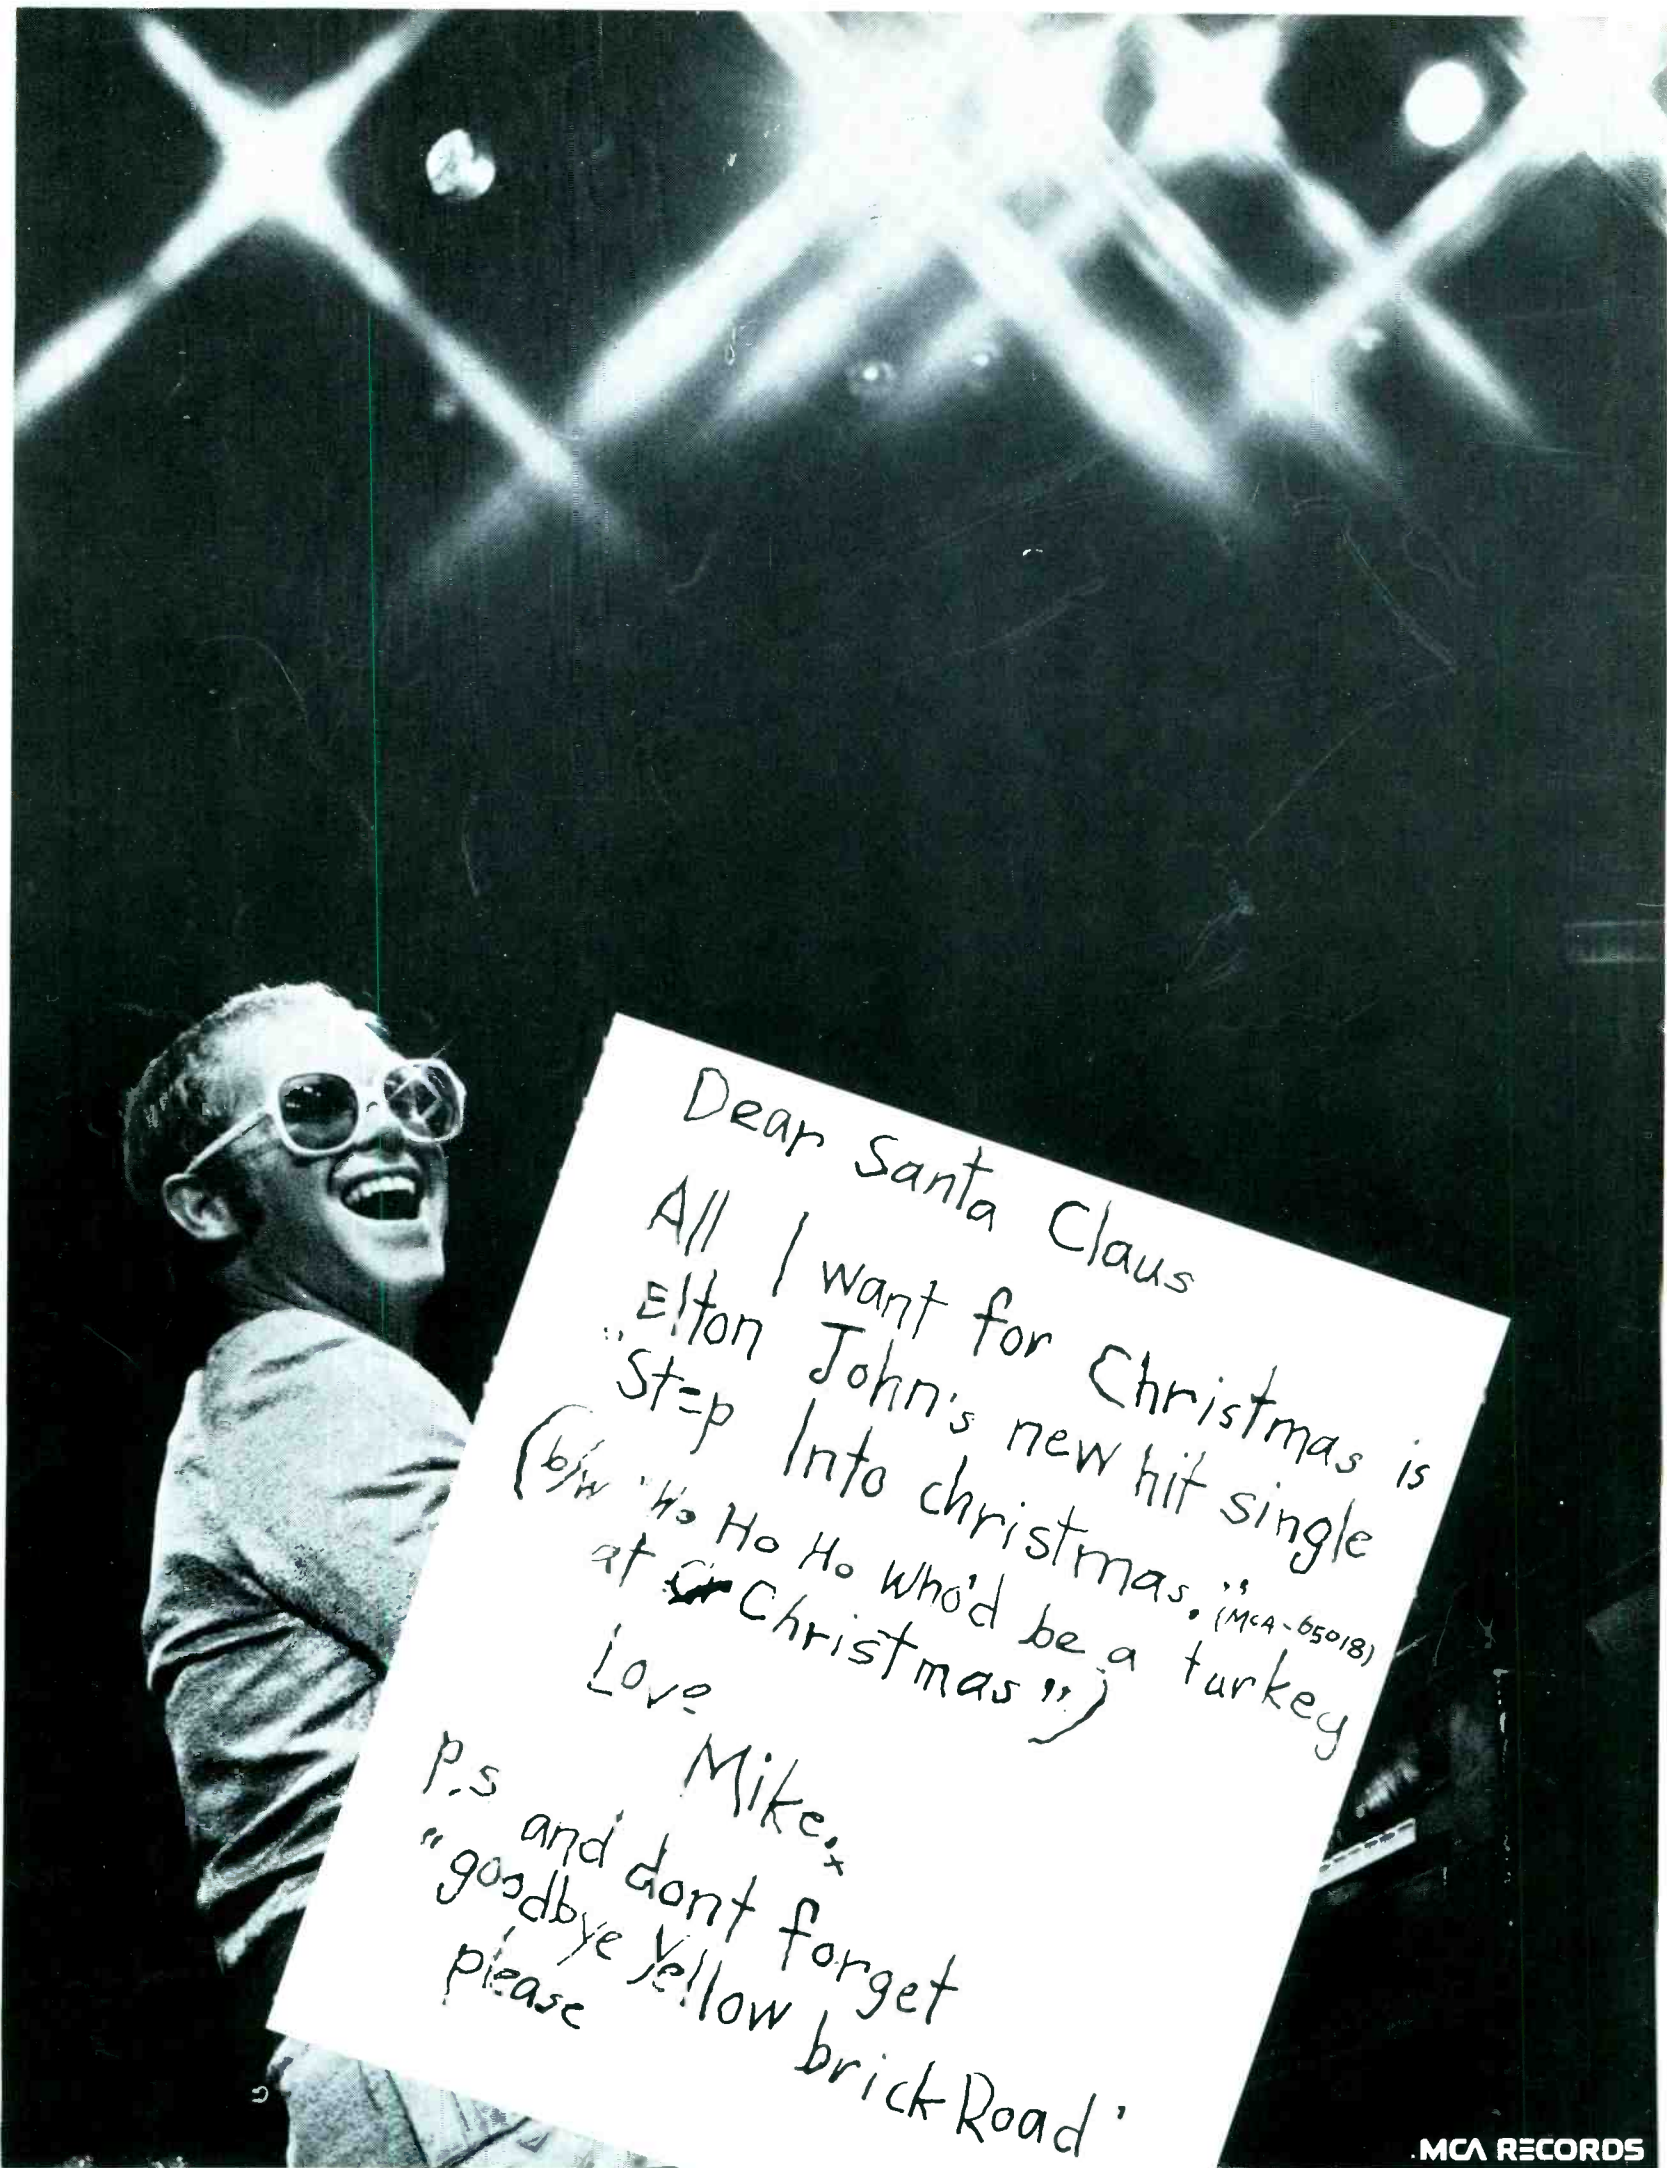 Dear Santa Claus
All I want for Christmas is
Elton John's new hit single
"Step Into christmas." (MCA-65018)
(b/w "Ho Ho Ho Who'd be a turkey
at Christmas")
Love
Mike.x
P.s and dont forget
"goodbye Yellow brick Road'
please
MCA RECORDS